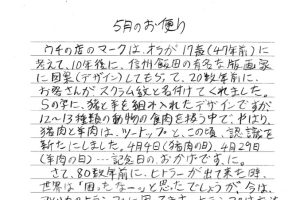 5月のお便り
ウチの店のマークは、オラが17歳(47年前)に
考えて、10年後に、信州飯田の有名な版画家
に図案(デザイン)してもらって、20数年前に、
お客さんがスクラム紋と名付けてくれました。
Sの字に、猪と羊を組み入れたデザインですが
12〜13種類の動物の食肉を扱う中で、やはり、
猪肉と羊肉は、ツートップだと、この頃、認識を
新たにしました。4月4日(猪肉の日)、4月29日
(羊肉の日)…記念日の、おかげです。に。
さて、80数年前に、ヒトラーが出て来た時、
世界は「困ったなーっ」と思ったでしょうが、今は、